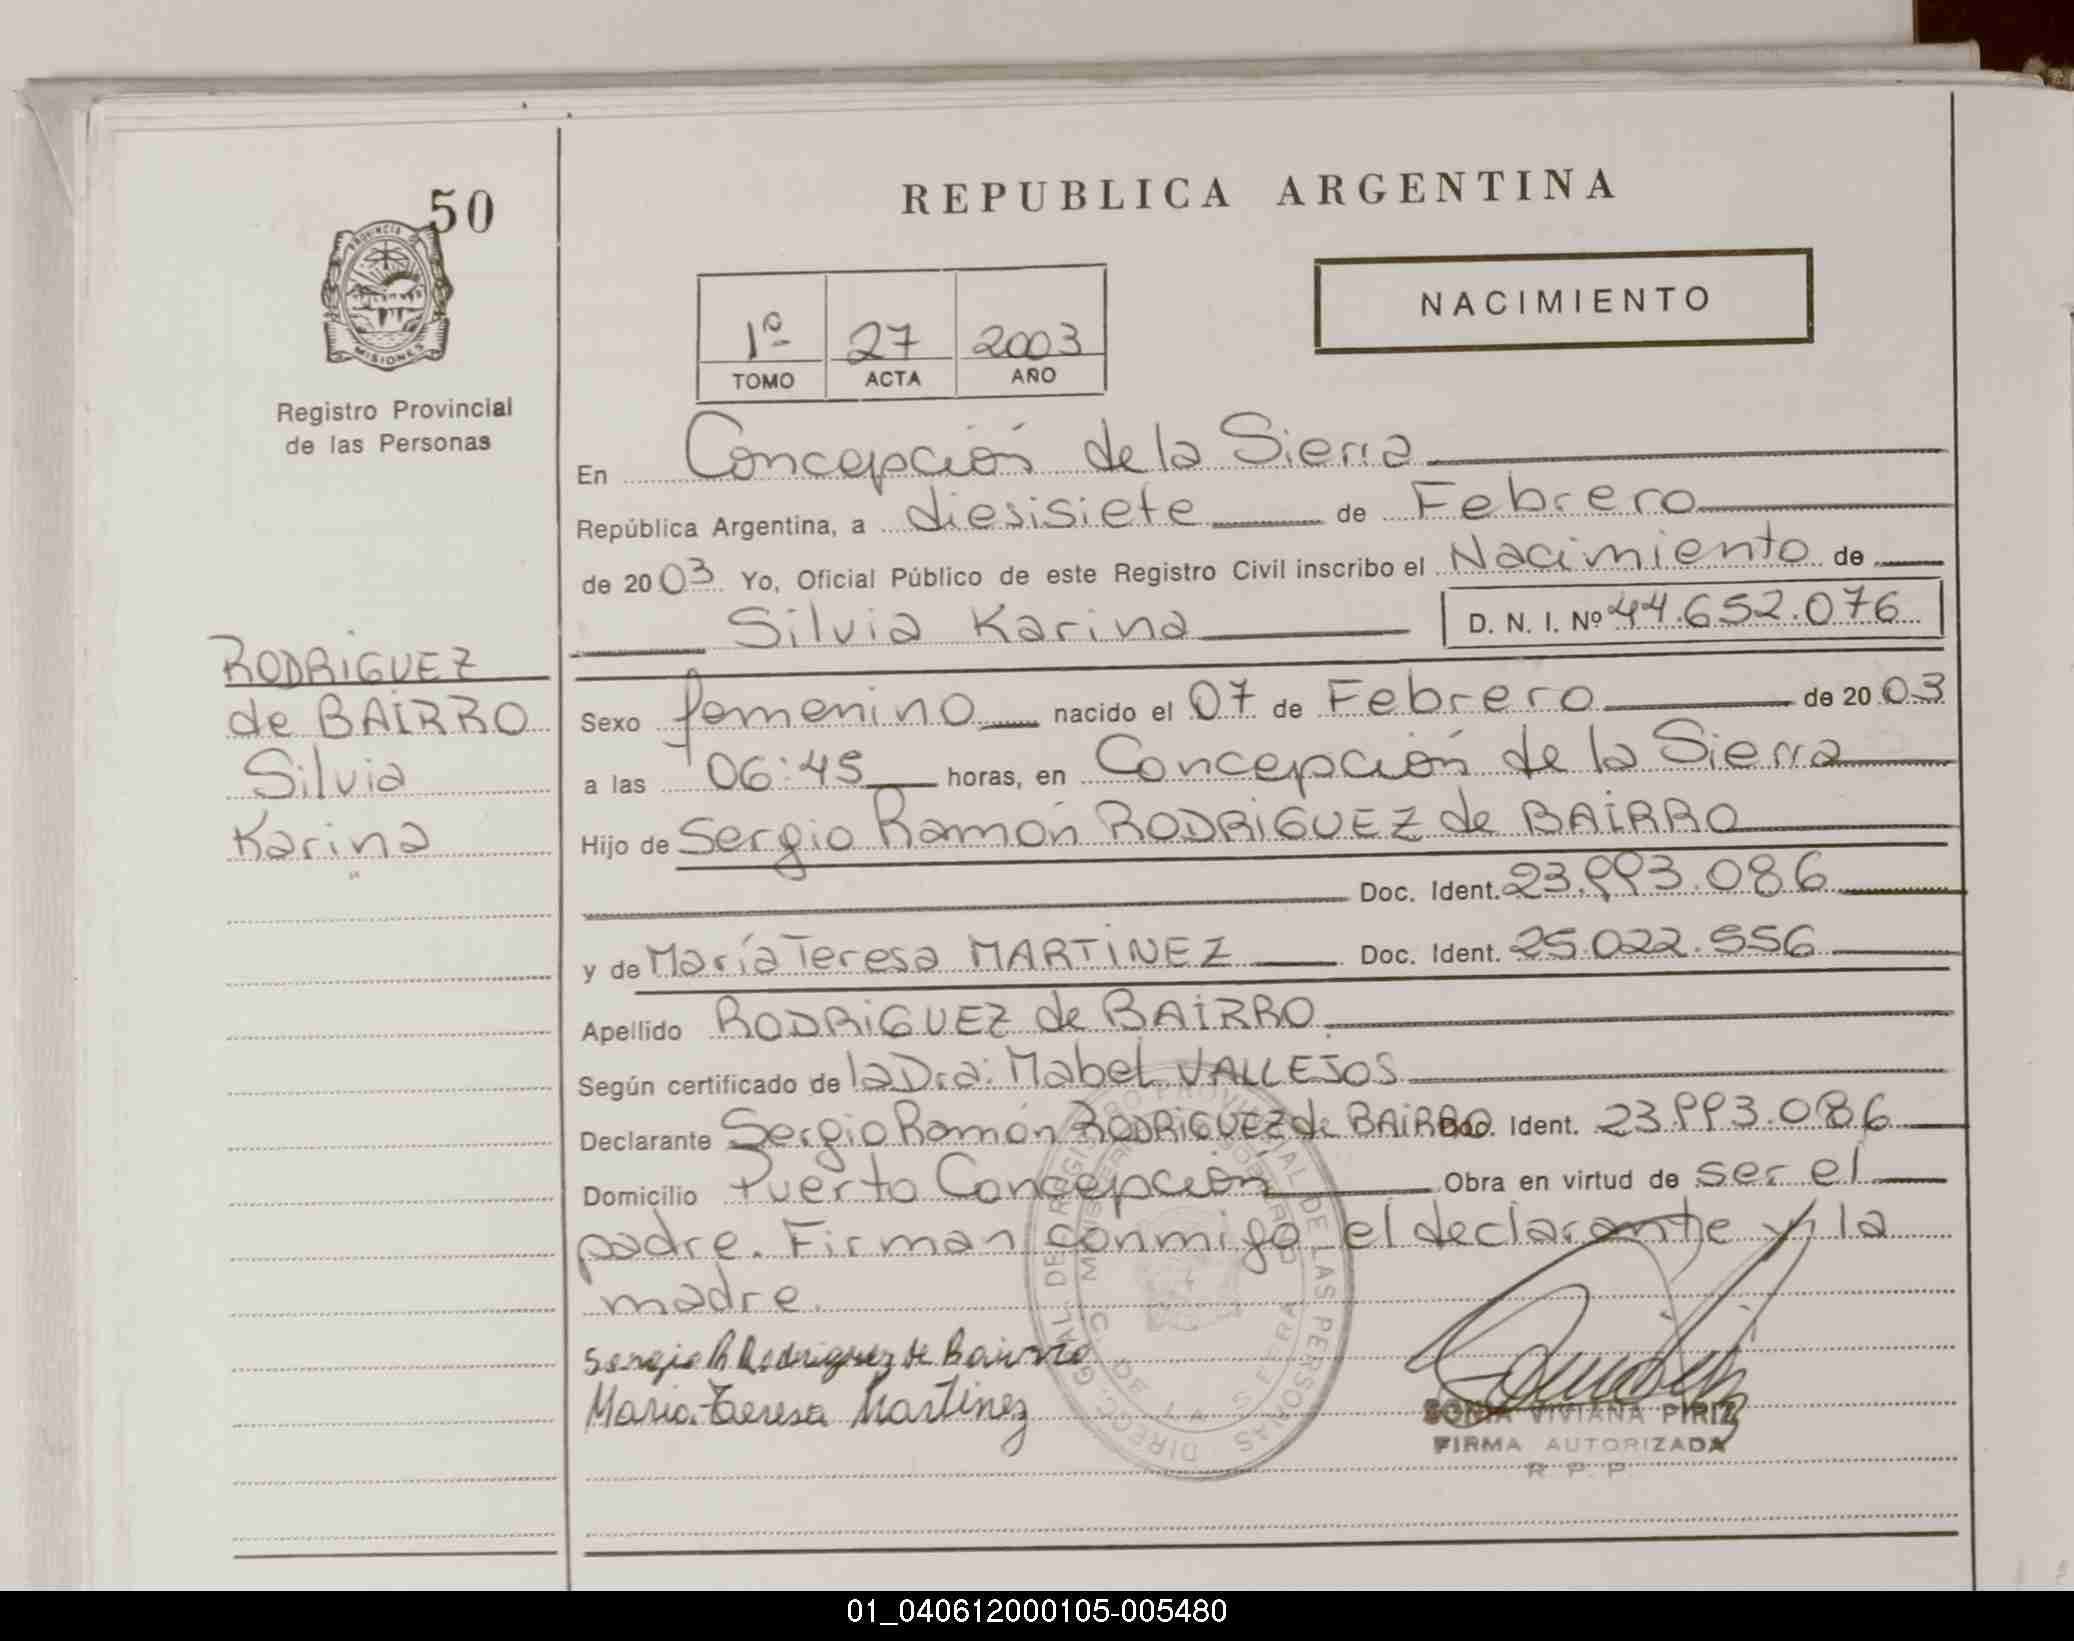 50
PROVINCIA DE
MISIONES
Registro Provincial
de las Personas
REPUBLICA ARGENTINA
NACIMIENTO
1º 27 2003
TOMO ACTA AÑO
En Concepción de la Sierra
República Argentina, a diesisiete de Febrero
de 2003 Yo, Oficial Público de este Registro Civil inscribo el Nacimiento de
Silvia Karina D. N. I. Nº 44.652.076
RODRIGUEZ
de BAIRRO
Silvia
Karina
Sexo femenino nacido el 07 de Febrero de 2003
a las 06:45 horas, en Concepción de la Sierra
Hijo de Sergio Ramón RODRIGUEZ de BAIRRO
Doc. Ident. 23.993.086
y de María Teresa MARTINEZ Doc. Ident. 25.022.556
Apellido RODRIGUEZ de BAIRRO
Según certificado de la Dra: Mabel VALLEJOS
Declarante Sergio Ramón RODRIGUEZ de BAIRRO Doc. Ident. 23.993.086
Domicilio Puerto Concepción Obra en virtud de ser el
padre. Firman conmigo el declarante y la
madre.
Sergio R Rodriguez de Bairro
Maria Teresa Martinez
DIRECC. GRAL. DE REGISTRO PROVINCIAL DE LAS PERSONAS
C. DE LA SIERRA
SONIA VIVIANA PIRIZ
FIRMA AUTORIZADA
R. P. P.
01_040612000105-005480